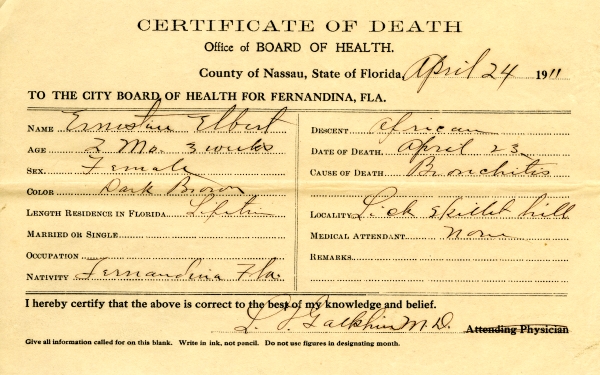 CERTIFICATE OF DEATH
Office of BOARD OF HEALTH.
County of Nassau, State of Florida, April 24 1911
TO THE CITY BOARD OF HEALTH FOR FERNANDINA, FLA.
NAME Elbert
AGE 2 Mo. 3 weeks
SEX Female
COLOR Dark Brown
LENGTH RESIDENCE IN FLORIDA Lifetim
MARRIED OR SINGLE
OCCUPATION
NATIVITY Fernandina Fla.
DESCENT African
DATE OF DEATH April 23
CAUSE OF DEATH Bronchitis
LOCALITY Lick Skillet hill
MEDICAL ATTENDANT None
REMARKS
I hereby certify that the above is correct to the best of my knowledge and belief.
M.D. Attending Physician
Give all information called for on this blank. Write in ink, not pencil. Do not use figures in designating month.